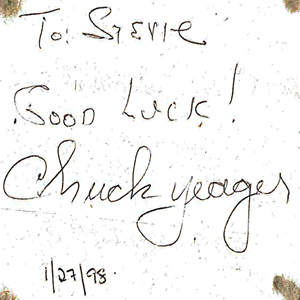 To: Stevie
Good Luck!
Chuck yeager
1/27/98.